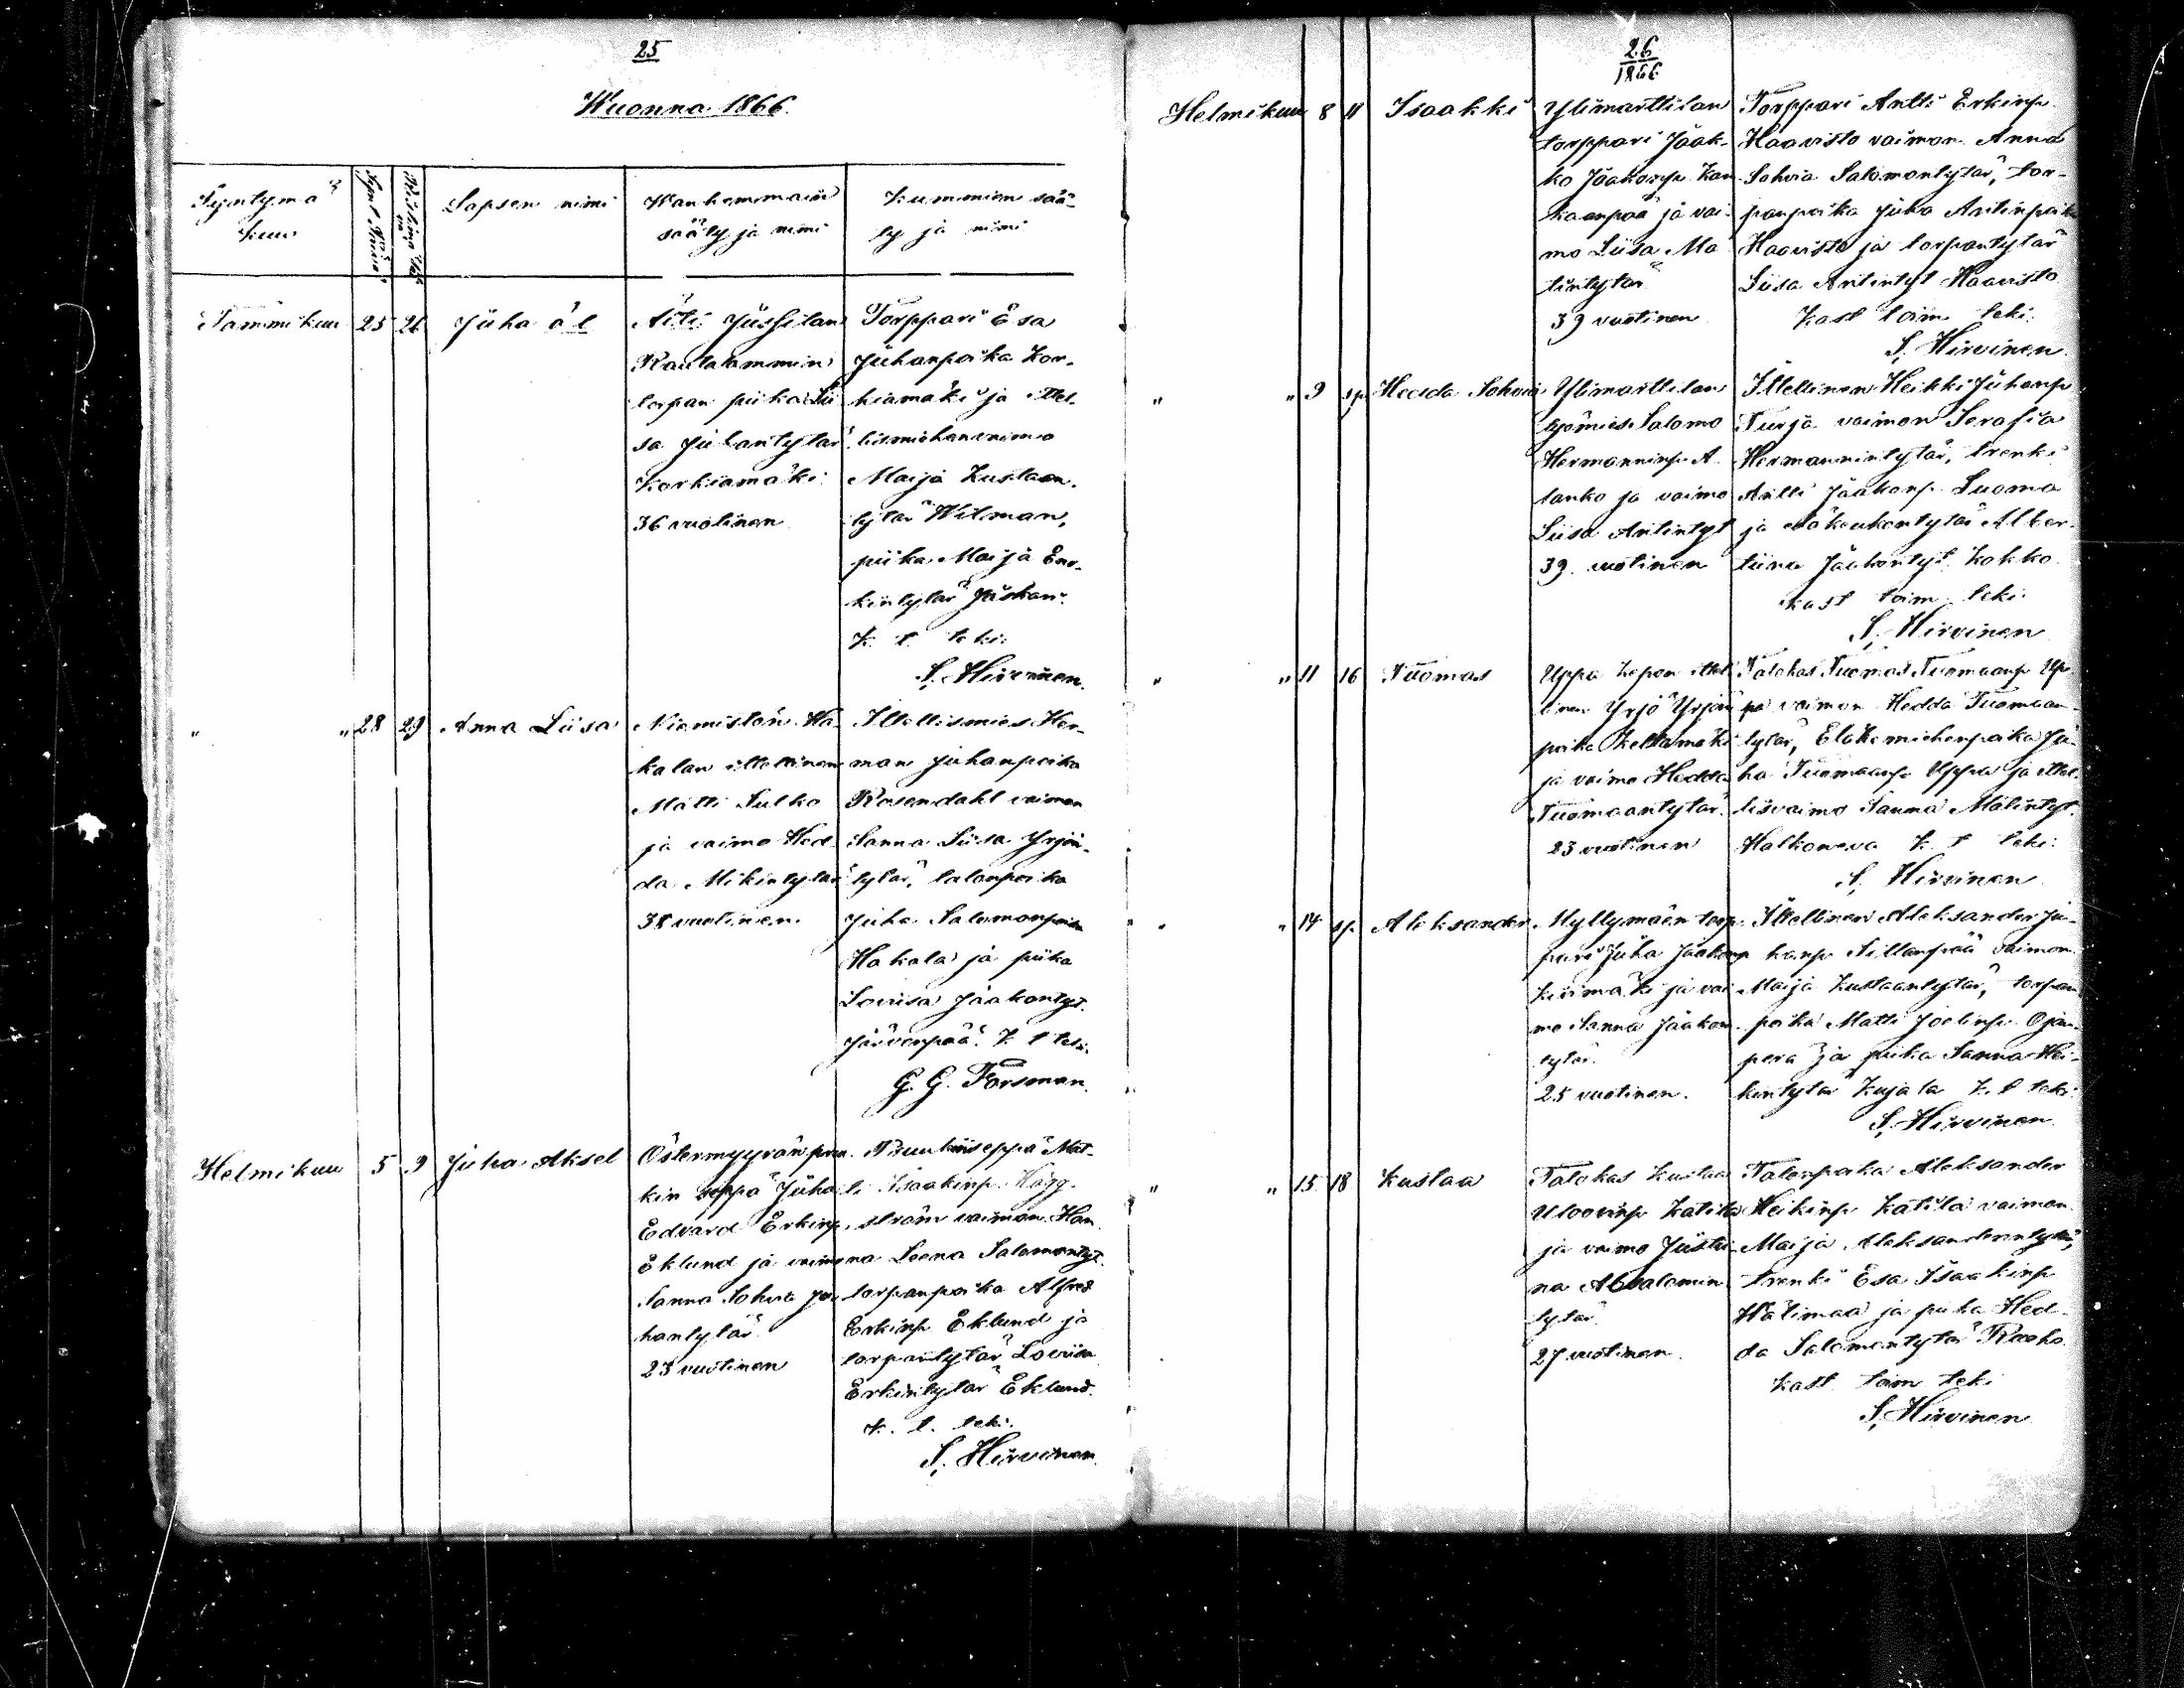 25
Wuonna 1866.
Syntymä
kuu
Lapsen nimi
Wanhemmain
sääty ja nimi
Kummien sää-
ty ja nimi
Tammikuu 25 26 Juha äl
Äiti Jussilan
Rautalammin
torpan piika Lii
sa Juhantytär
Korkiamäki
36 vuotinen
Torppari Esa
Juhanpoika Kor-
kiamäki ja ittel-
lismiehen vaimo
Maija Kustaan-
tytär Wilman,
piika Maija Eer-
kintytär
K. t. teki:
S. Hirvinen.
" " 28 29 Anna Liisa
Niemistön Ha-
kalan ittellinen
Matti Sulko
ja vaimo Hed-
da Mikintytär
38 vuotinen.
Ittellismies Her-
man Juhanpoika
Rosendahl vaimon
Sanna Liisa Yrjön-
tytär, talonpoika
Juha Salomonpoika
Hakala ja piika
Loviisa Jaakontyt.
Järvenpää. K t teki:
G. G. Forsman.
Helmikuu 5 9 Juha Aksel
Östermyyrän pruu-
kin seppä Juha
Edvard Erkinp.
Eklund ja vaimo
Sanna Sohvia Ju-
hantytär
23 vuotinen
Pruukinseppä Mat-
ti Isaakinp. Hägg-
ström vaimon Han-
na Leena Salomontyt.
torpanpoika Alfred
Erkinp Eklund ja
torpantytär Loviisa
Erkintytär Eklund.
K. t. teki.
S. Hirvinen.
26
1866
Helmikuu 8 11 Isaakki
Ylimarttilan
torppari Jaak-
ko Jaakonp. Kan
kaanpää ja vai-
mo Liisa Ma
tintytär
39 vuotinen
Torppari Antti Erkinp
Haavisto vaimon Anna
Sohvia Salomontytär, tor-
panpoika Juha Antinpoika
Haavisto ja torpantytär
Liisa Antintyt Haavisto
Kast toim teki:
S. Hirvinen.
" " 9 sp Hedda Sohvia
Ylimarttilan
työmies Salomo
Hermanninp. A
lanko ja vaimo
Liisa Antintyt
39. vuotinen
Ittellinen Heikki Juhanp
Turja vaimon Serafia
Hermannintytär, trenki
Antti Jaakonp. Luoma
ja
tiina Jaakontyt. Kokko
kast toim. teki.
S. Hirvinen
" " 11 16 Tuomas
Uppa Kepon ittel
linen Yrjö Yrjön
poika Keltamäki
ja vaimo Hedda
Tuomaantytär.
23 vuotinen
Talokas Tuomas Tuomaanp Up-
pa vaimon Hedda Tuomaan-
tytär, Eläkemiehenpoika Ju-
ha Tuomaanp Uppa ja ittel-
lisvaimo Sanna Matintyt.
Halkoneva K. t teki:
S. Hirvinen
" " 14 sp. Aleksander
Myllymäen torp-
pari Juha Jaakonp
Kiirimäki ja vai
mo Sanna Jaakon-
tytär.
25 vuotinen.
Ittellinen Aleksander Ju-
hanp Sillanpää vaimon
Maija Kustaantytär, torpan
poika Matti Joelinp. Ojan-
perä ja piika Sanna Hei-
kintytär Kujala K. t teki:
S. Hirvinen
" " 15 18 Kustaa
Talokas Kustaa
Uloovinp Katila
ja vaimo Justii
na Absalomin
tytär.
27 vuotinen.
Talonpoika Aleksander
Heikinp Katila vaimon
Maija Aleksanderintytär,
trenki Esa Isaakinp
Wälimaa ja piika Hed-
da Salomontytär
Kast. toim teki
S. Hirvinen